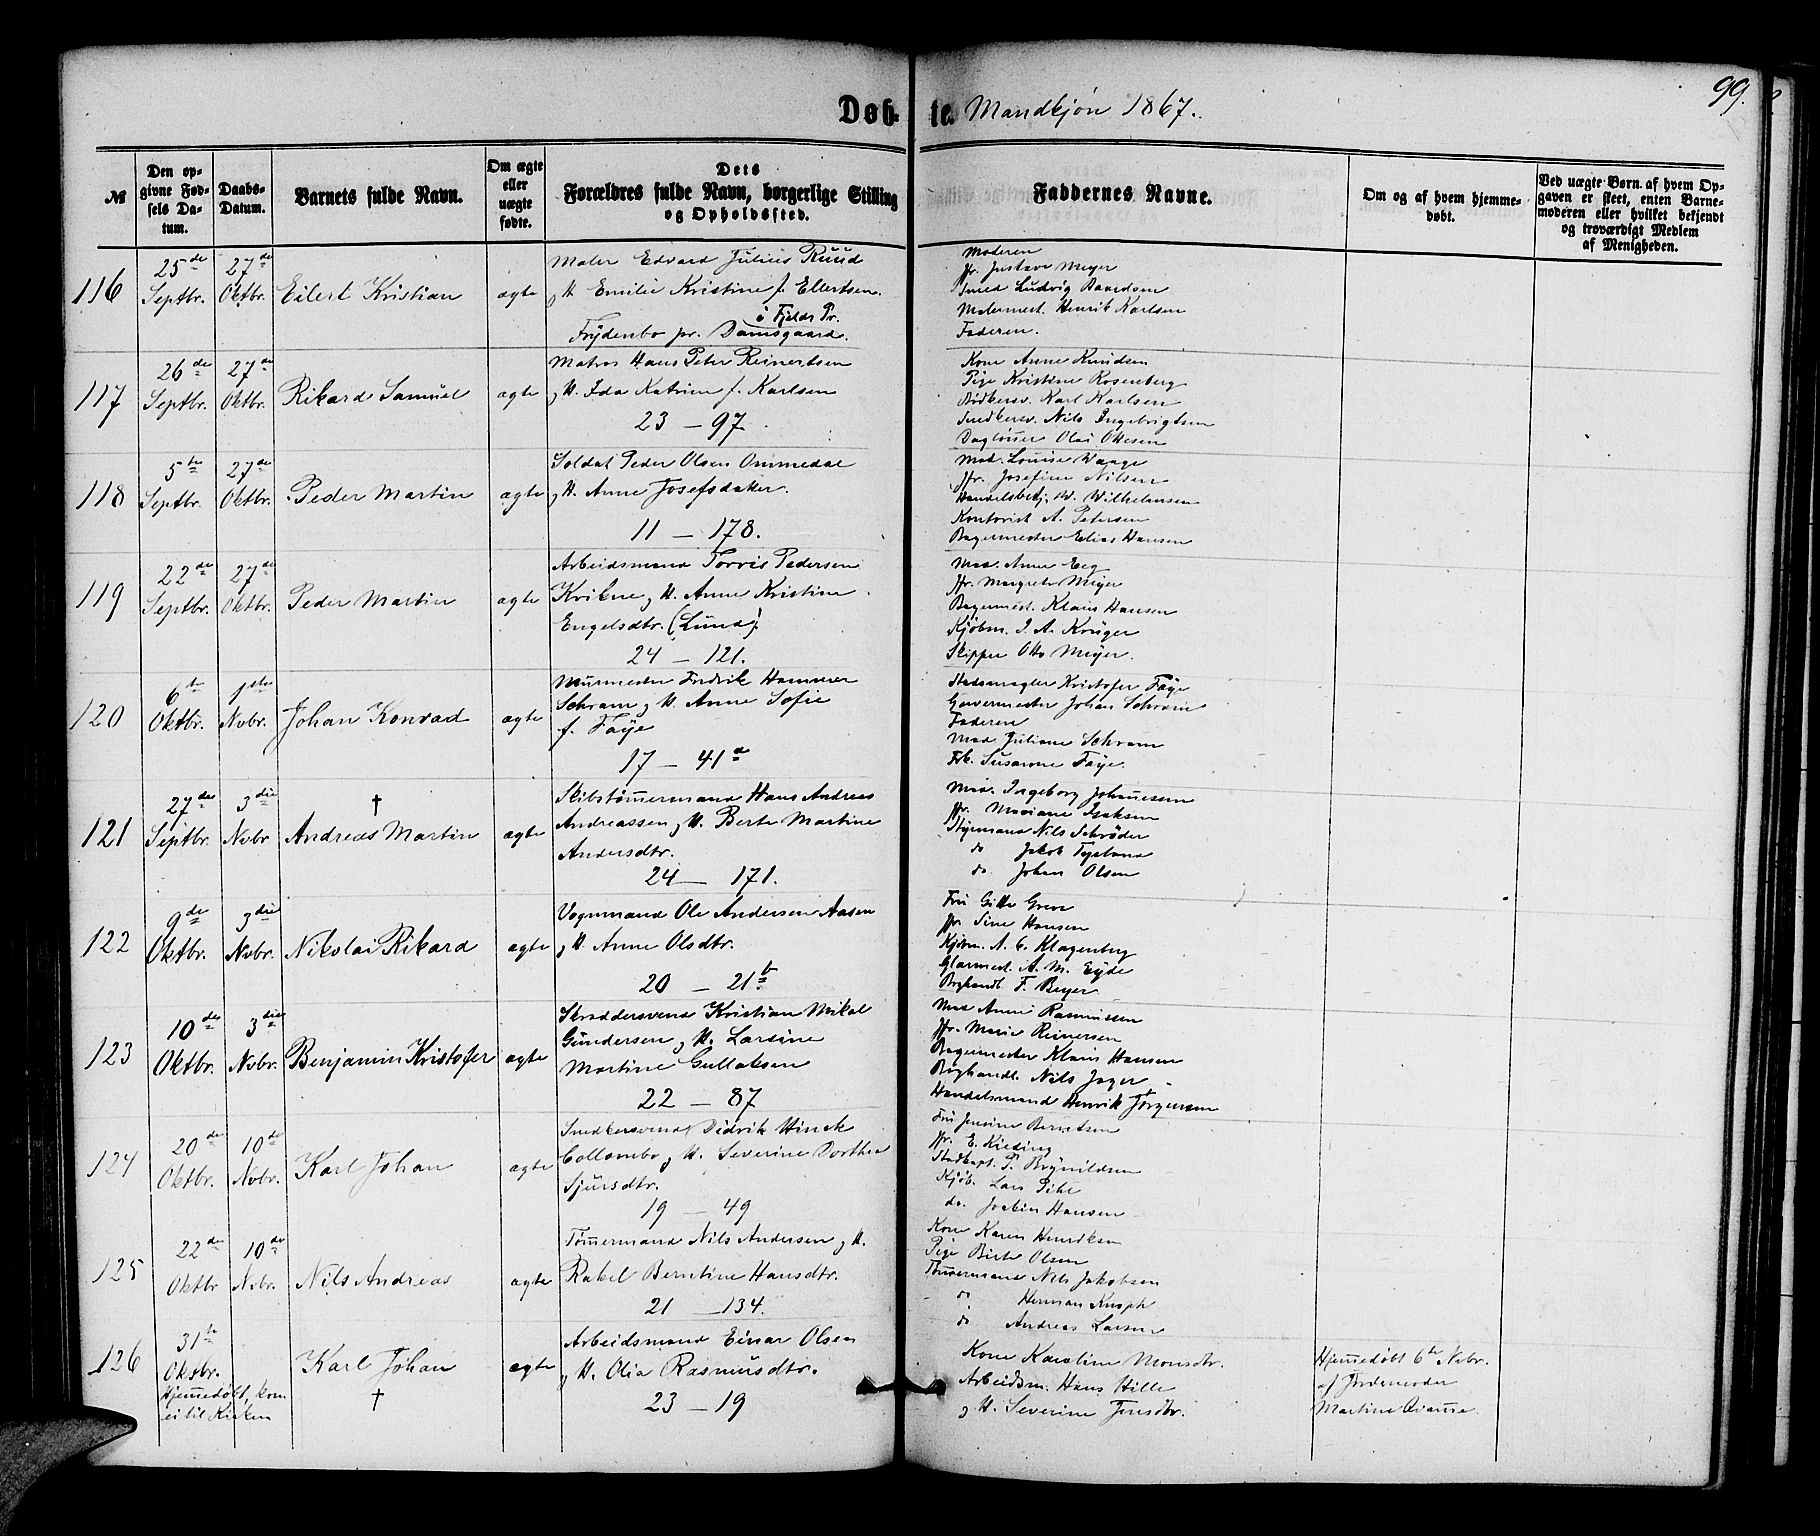 99.
Døb-te. Mandkjøn 1867.
№
Den opgivne Fødsels Datum.
Daabs-Datum.
Barnets fulde Navn.
Om ægte eller uægte fødte.
Dets Forældres fulde Navn, borgerlige Stilling og Opholdssted.
Faddernes Navne.
Om og af hvem hjemmedøbt.
Ved uægte Børn, af hvem Opgaven er skeet, enten Barnemoderen eller hvilket bekjendt og troværdigt Medlem af Menigheden.
116
25de Septbr.
27de Oktbr.
Eilert Kristian
ægte
Maler Edvard Julius Ruud
og H. Emilie Kristine f. Ellertsen.
i Fjelds Pr.
Frydenbo pr. Damsgaard.
Moderen
Jfr. Gustava Meyer
Smed Ludvig Davidsen
Malermest. Henrik Karlsen
Faderen.
117
26de Septbr.
27de Oktbr.
Rikard Samuel
ægte
Matros Hans Peter Reinertsen
og H. Ida Katrine f. Karlsen
23 — 97.
Kone Anne Knudsen
Pige Kristine Rosenberg
Bødkersv. Karl Karlsen
Snedkersv. Nils Ingebrigtsen
Daglønner Olai Ottesen
118
5te Septbr.
27de Oktbr.
Peder Martin
ægte
Soldat Peder Olsen Ommedal
og H. Anne Josefsdatter.
11 — 178.
Mad. Louise Waage
Jfr. Josefine Nilsen
Handelsbetj. W. Wilhelmsen
Kontorist A. Petersen
Bagermester Elias Hansen
119
22de Septbr.
27de Oktbr.
Peder Martin
ægte
Arbeidsmand Torris Pedersen
Krikne og H. Anne Kristine
Engelsdtr. (Lund).
24 — 121.
Mad. Anne Eeg
Jfr. Margrete Meyer
Bagermest. Klaus Hansen
Kjøbm. J. A. Krüger
Skipper Otto Meyer.
120
6te Oktbr.
1ste Nvbr.
Johan Konrad
ægte
Murmester Fredrik Hammer
Schram og H. Anne Sofie
f. Faye
17 — 41a
Stadsmægler Kristofer Faye
Garvermester Johan Schram
Faderen
Mad. Juliane Schram
Frk. Susanne Faye.
121
27de Septbr.
3die Nvbr.
†
Andreas Martin
ægte
Skibstømmermand Hans Andreas
Andreassen og H. Berte Martine
Andersdtr.
24 — 171.
Mad. Ingeborg Johannessen
Jfr. Mariane Isaksen
Styrmand Nils Schrøder
do Jakob Tysland
do. Johan Olsen
122
9de Oktbr.
3die Nvbr.
Nikolai Rikard
ægte
Vognmand Ole Andersen Aasen
og H. Anne Olsdtr.
20 — 21b
Fru Gitte Greve
Jfr. Sine Hansen
Kjøbm. A. C. Klagenberg
Glarmest. A. M. Eyde
Boghandl. F. Beyer
123
10de Oktbr.
3die Nvbr.
Benjamin Kristofer
ægte
Skræddersvend Kristian Mikal
Gundersen og H. Larsine
Martine Gullaksen
22 — 87
Mad Anne Rasmussen
Jfr. Marie Reinersen
Bagermester Klaus Hansen
Boghandl. Nils Jager
Handelsmand Henrik Jørgensen
124
20de Oktbr.
10de Nvbr.
Karl Johan
ægte
Snedkersvend Didrik Hinck
Collombo og H. Severine Dorthea
Sjursdtr.
19 — 49
Fru Jensine Berntsen
Jfr. E. Kieding
Stadkapt. P. Brynildsen
Kjøb. Lars Pihl
do. Joakim Hansen
125
22de Oktbr
10de Nvbr.
Nils Andreas
ægte
Tømmermand Nils Andersen og H.
Rakel Berntine Hansdtr.
21 — 134.
Kone Karen Henriksen
Pige Birte Olsen
Tømmermand Nils Jakobsen
do Herman Knoph
do Andreas Larsen
126
31te Oktbr.
Hjemmedøbt, kom
ei til Kirken
Karl Johan
†
ægte
Arbeidsmand Einar Olsen
og H. Olia Rasmusdtr.
23 — 19
Kone Karoline Monsdtr.
Arbeidsm. Hans Hille
og H. Severine Jensdtr.
Hjemmedøbt 6te Nvbr.
af Jordemoder
Martine